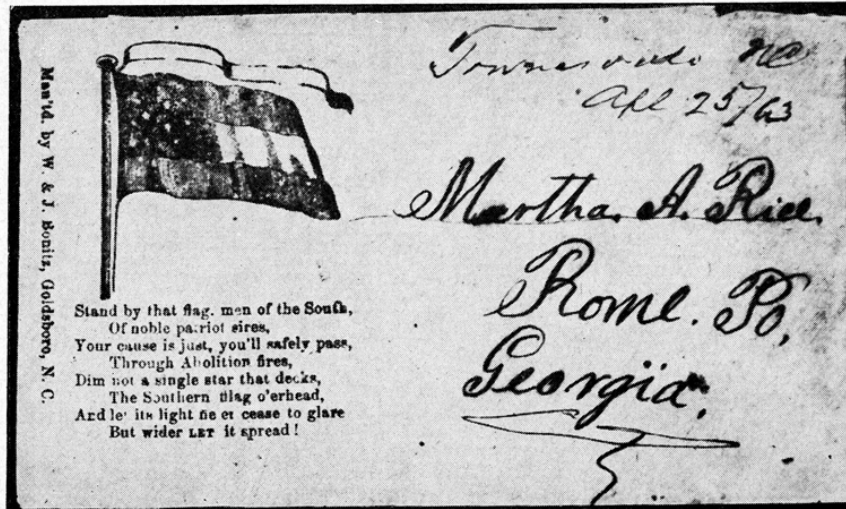 Man'fd. by W. & J. Bonitz, Goldsboro, N. C
Stand by that flag, men of the South,
Of noble patriot sires,
Your cause is just, you'll safely pass,
Through Abolition fires,
Dim not a single star that decks,
The Southern flag o'erhead,
And le' its light ne er cease to glare
But wider LET it spread!
Townesville NC
Apl 25/63
Martha. A. Rice.
Rome. Po,
Georgia.